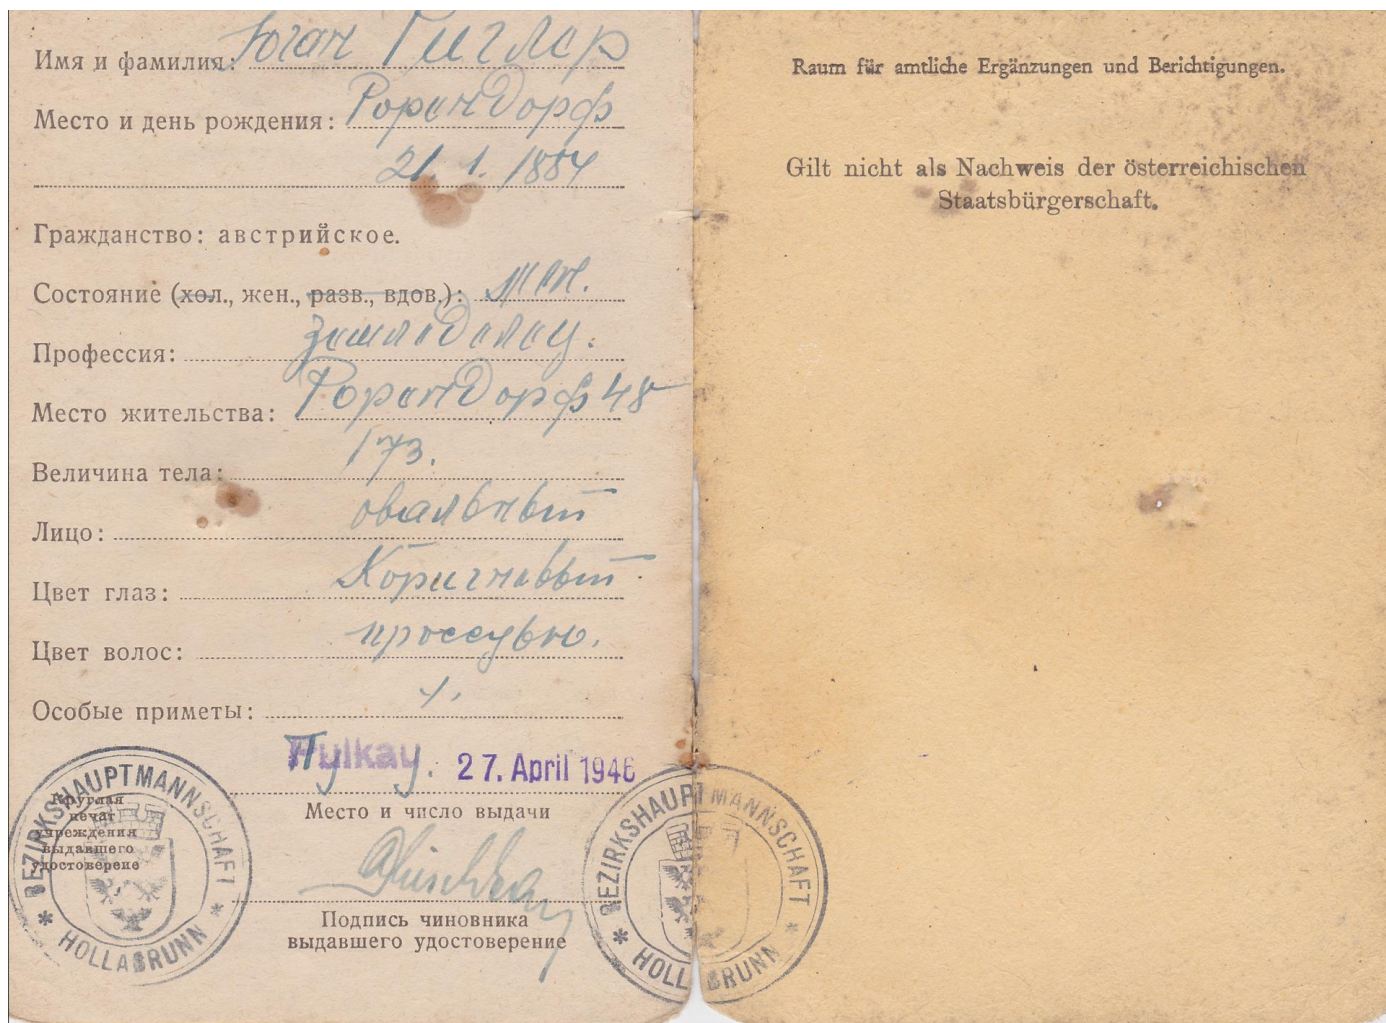 Имя и фамилия: Иоган Гиглер
Место и день рождения: Рорендорф
21.1.1884
Гражданство: австрийское.
Состояние (хол., жен., разв., вдов.): жен.
Профессия: земледелец.
Место жительства: Рорендорф 48
Величина тела: 173.
Лицо: овальный
Цвет глаз: Коричневый
Цвет волос:
Особые приметы:
Pulkau. 27. April 1946
Место и число выдачи
Круглая
печат
учреждения
выдавшего
удостоверене
BEZIRKSHAUPTMANNSCHAFT
* HOLLABRUNN *
Подпись чиновника
выдавшего удостоверение
BEZIRKSHAUPTMANNSCHAFT
* HOLLABRUNN *
Raum für amtliche Ergänzungen und Berichtigungen.
Gilt nicht als Nachweis der österreichischen
Staatsbürgerschaft.